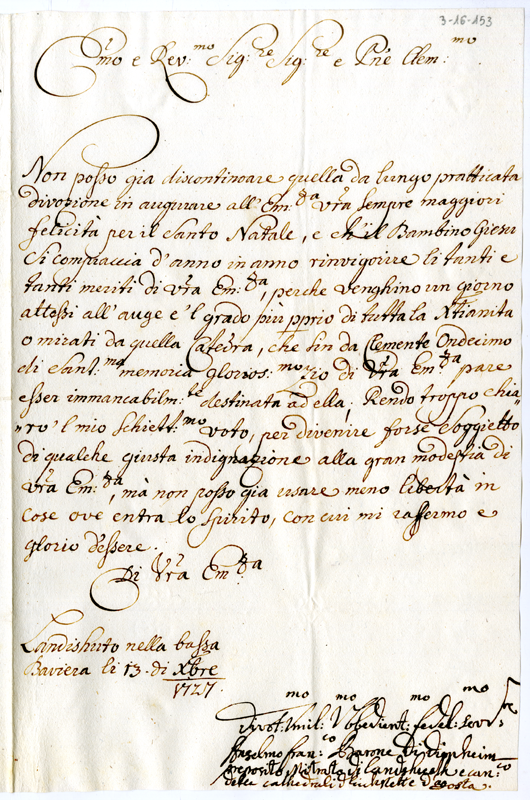 3-16-153
Emo e Rev:mo Sig:re Sig:re e Pne Clem:mo
Non posso gia discontinoare quella da lungo pratticata
divozione in augurare all' Em:za Vra sempre maggiori
felicità per il Santo Natale, e ch'il Bambino Giesu
Si compiaccia d'anno in anno rinvigoire li tanti e
tanti meriti di Vra Em:za, perche venghino un giorno
altessi all' auge e 'l grado più pprio di tutta la Xtianita
o mirati da quella Catedra, che sin da Clemente Ondecimo
di Sant:ma memoria glorios:mo Zio di Vra Em:za pare
esser immancabilm:te destinata ad ella; Rendo troppo chia„
„ro 'l mio Schiett:mo voto, per divenire forse Soggietto
di qualche giusta indignazione alla gran modestia di
Vra Em:za, mà non posso gia usare meno libertà in
cose ove entra lo Spirito, con cui mi raffermo e
glorio d'essere.
Di Vra Em:za
Landishuto nella bassa
Baviera li 13. di Xbre
1727
Divot:mo Umil:mo Obbedient:mo fedel:mo Serv:re
Anselmo Fran:co Barone di
preposito Mitrato di e can:co
delle cathedrali d'